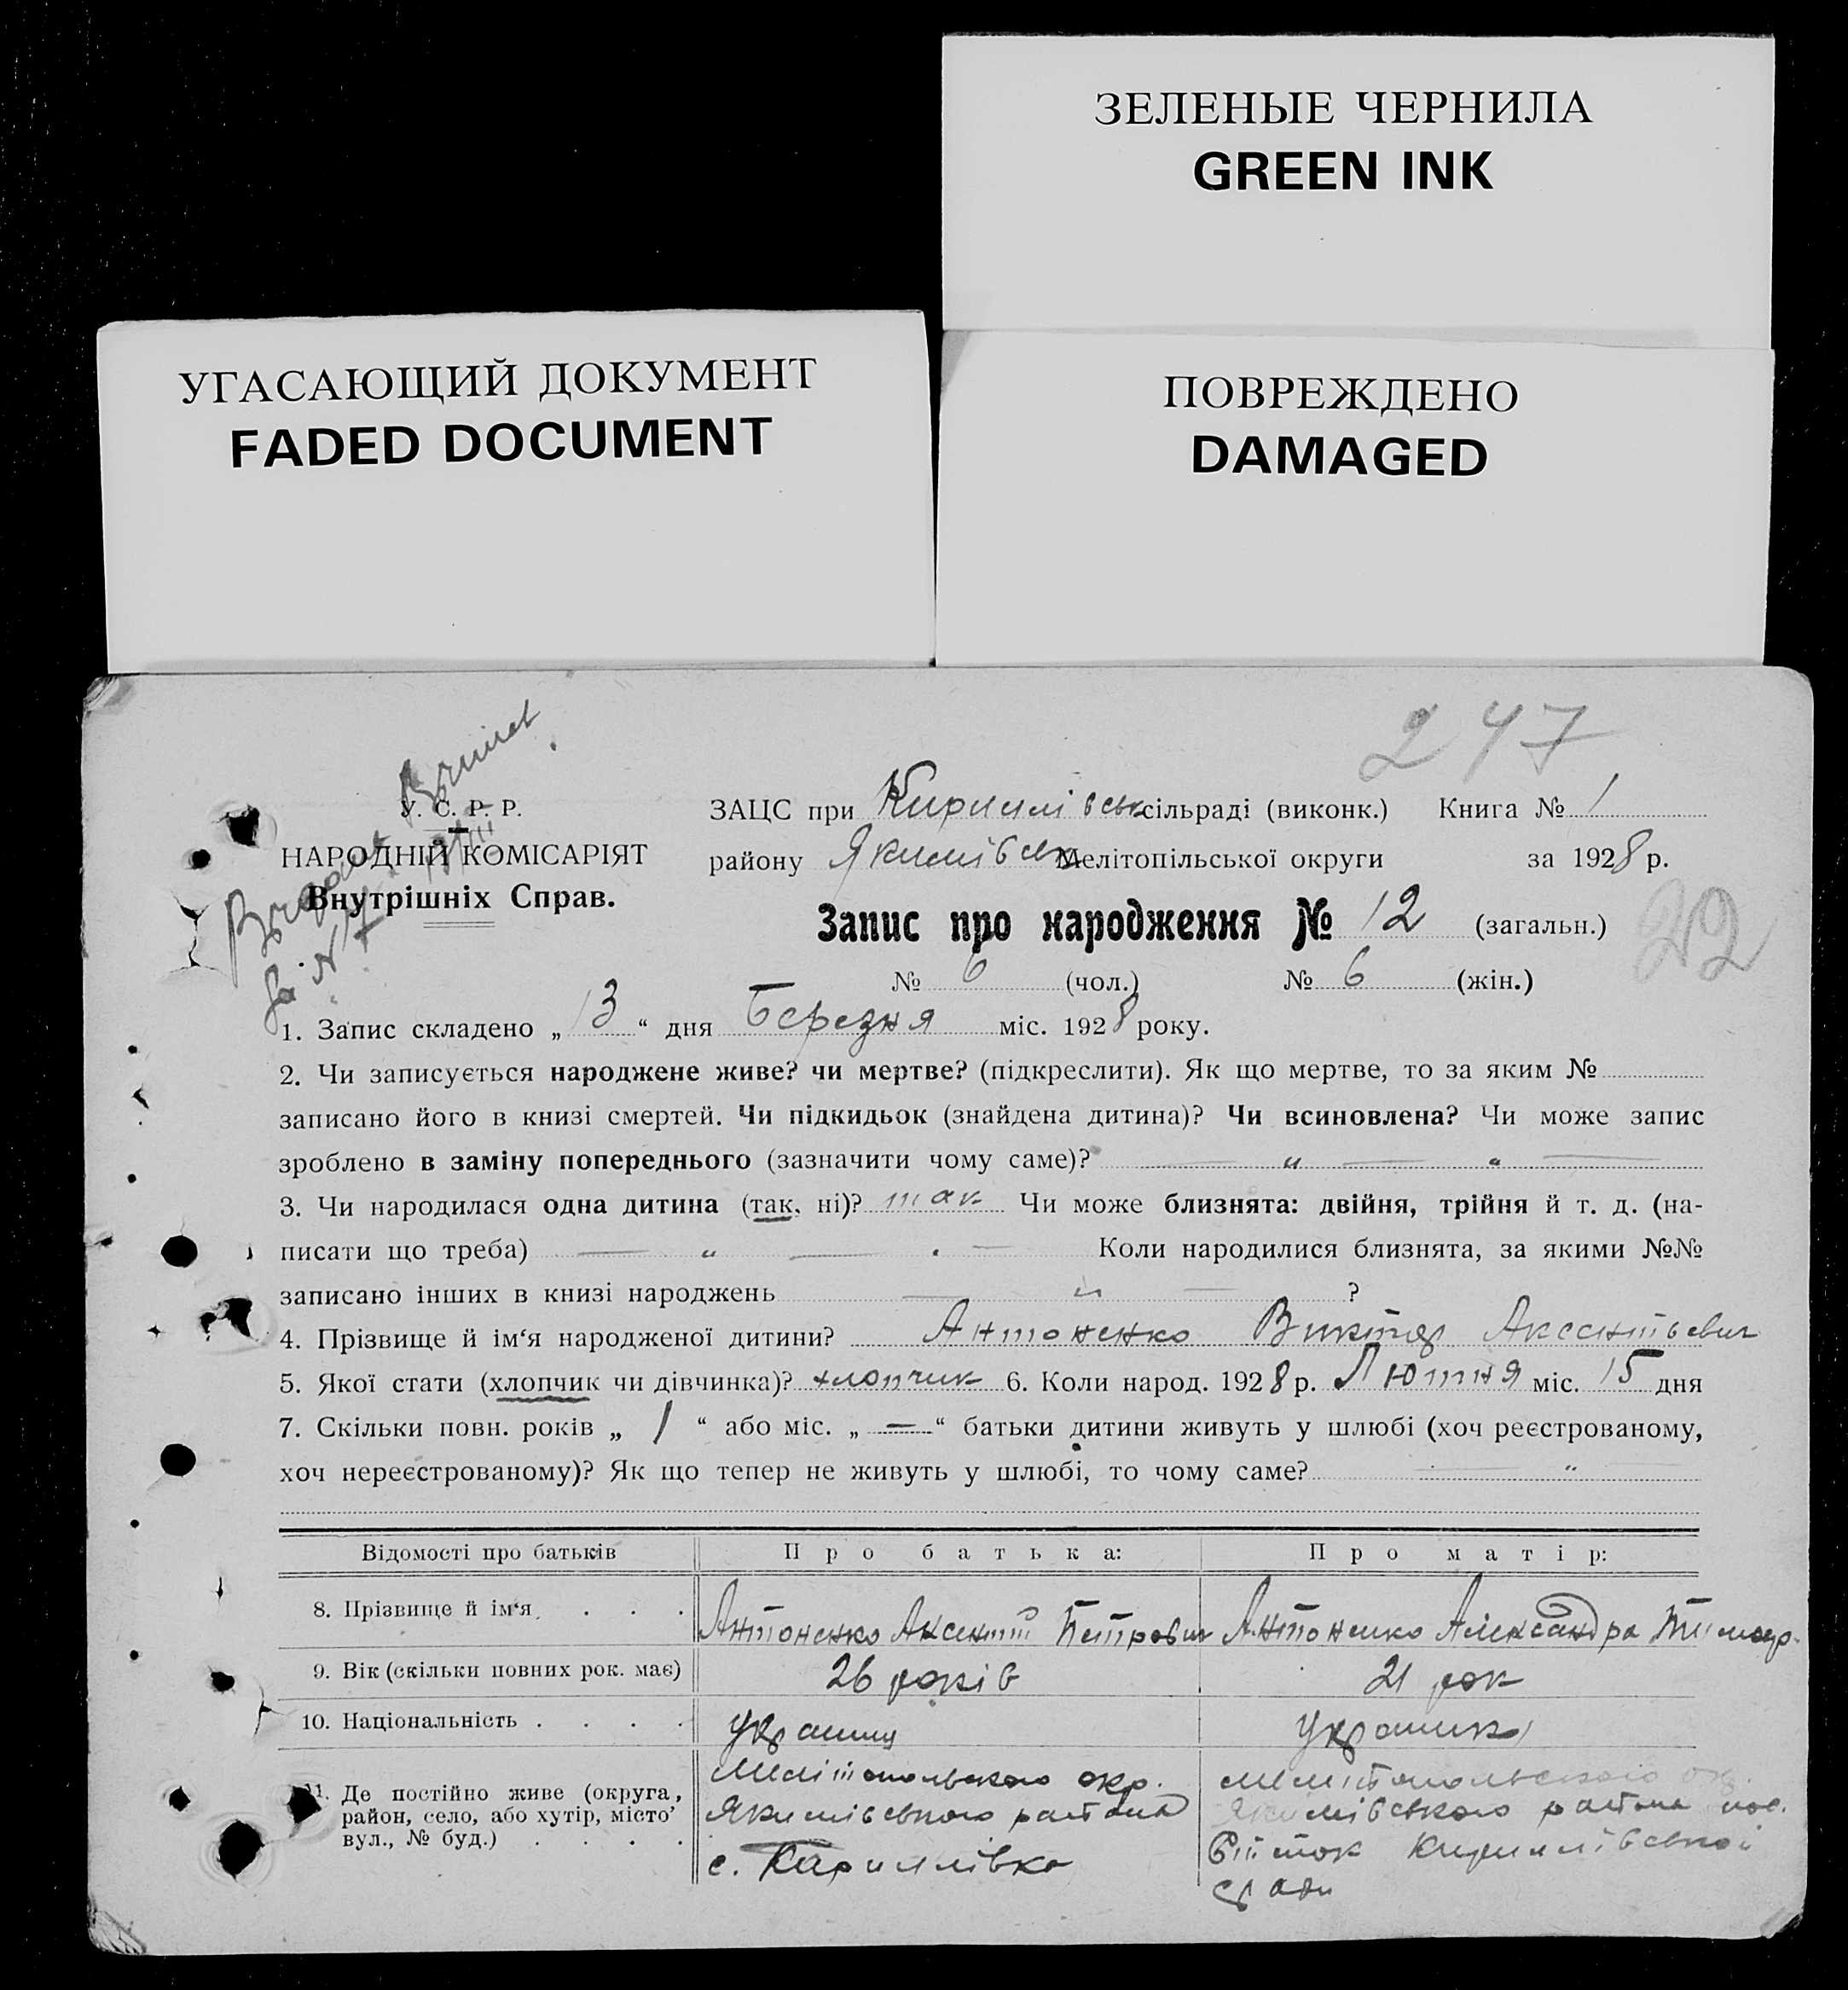 ЗЕЛЕНЫЕ ЧЕРНИЛА
GREEN INK
УГАСАЮЩИЙ ДОКУМЕНТ
FADED DOCUMENT
ПОВРЕЖДЕНО
DAMAGED
247
У. С. Р. Р.
НАРОДНІЙ КОМІСАРІЯТ
Внутрішніх Справ.
ЗАЦС при Кирилівськ сільраді (виконк.) Книга № 1
району Якимівськ Мелітопільської округи за 1928 р.
Запис про народження № 12 (загальн.)
22
№ 6 (чол.) № 6 (жін.)
1. Запис складено „ 13 “ дня Березня міс. 1928 року.
2. Чи записується народжене живе? чи мертве? (підкреслити). Як що мертве, то за яким №
записано його в книзі смертей. Чи підкидьок (знайдена дитина)? Чи всиновлена? Чи може запис
зроблено в заміну попереднього (зазначити чому саме)? — „ — „ —
3. Чи народилася одна дитина (так, ні)? так Чи може близнята: двійня, трійня й т. д. (на-
писати що треба) — „ — „ — Коли народилися близнята, за якими №№
записано інших в книзі народжень — „ — ?
4. Прізвище й ім‘я народженої дитини? Антоненко Виктор Аксентьевич
5. Якої стати (хлопчик чи дівчинка)? хлопчик 6. Коли народ. 1928 р. Лютня міс. 15 дня
7. Скільки повн. років „ 1 “ або міс. „ — “ батьки дитини живуть у шлюбі (хоч реєстрованому,
хоч нереєстрованому)? Як що тепер не живуть у шлюбі, то чому саме? — „ —
Відомості про батьків Про батька: Про матір:
8. Прізвище й ім‘я . . . Антоненко Аксентий Петрович Антоненко Александра
9. Вік (скільки повних рок. має) 26 років 21 рок
10. Національність . . . . украинц украинк
11. Де постійно живе (округа, район, село, або хутір, місто’ вул., № буд.) . . . .
Мелітопольского окр.
Якимівського района
с. Кариллівка
Мелітопольского окр.
Якимівського района пос.
Кириллівской